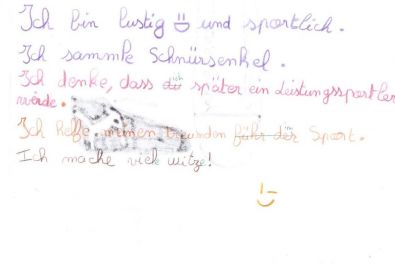 Ich bin lustig und sportlich.
Ich sammle Schnürsenkel.
Ich denke, dass ich später ein Leistungssportler
werde.
Ich helfe meinen Freunden führ der Sport.
Ich mache viele witze!